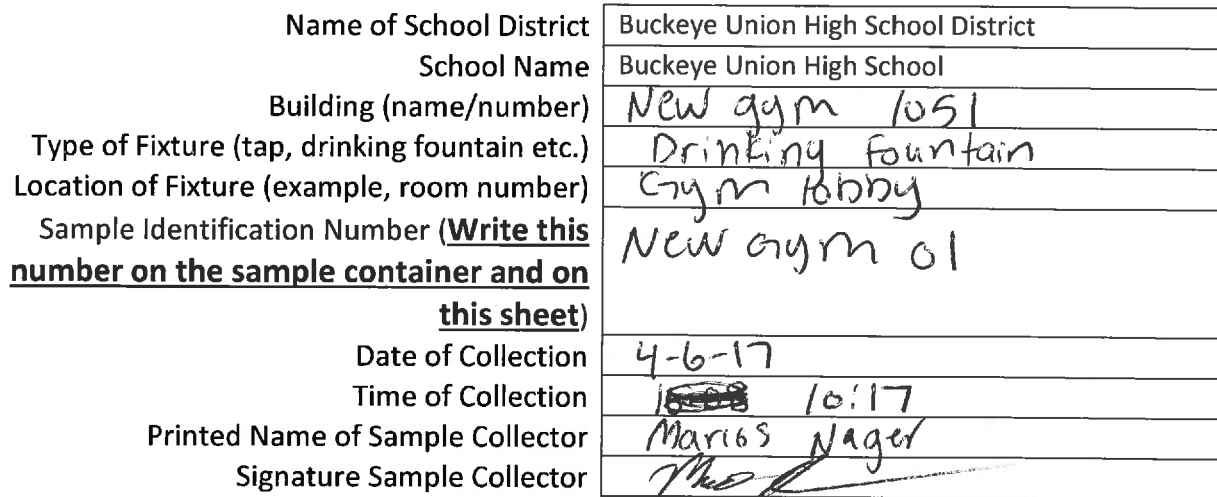 Name of School District Buckeye Union High School District
School Name Buckeye Union High School
Building (name/number) New gym 1051
Type of Fixture (tap, drinking fountain etc.) Drinking fountain
Location of Fixture (example, room number) Gym lobby
Sample Identification Number (Write this New Gym 01
number on the sample container and on
this sheet)
Date of Collection 4-6-17
Time of Collection 10:17
Printed Name of Sample Collector Nager
Signature Sample Collector